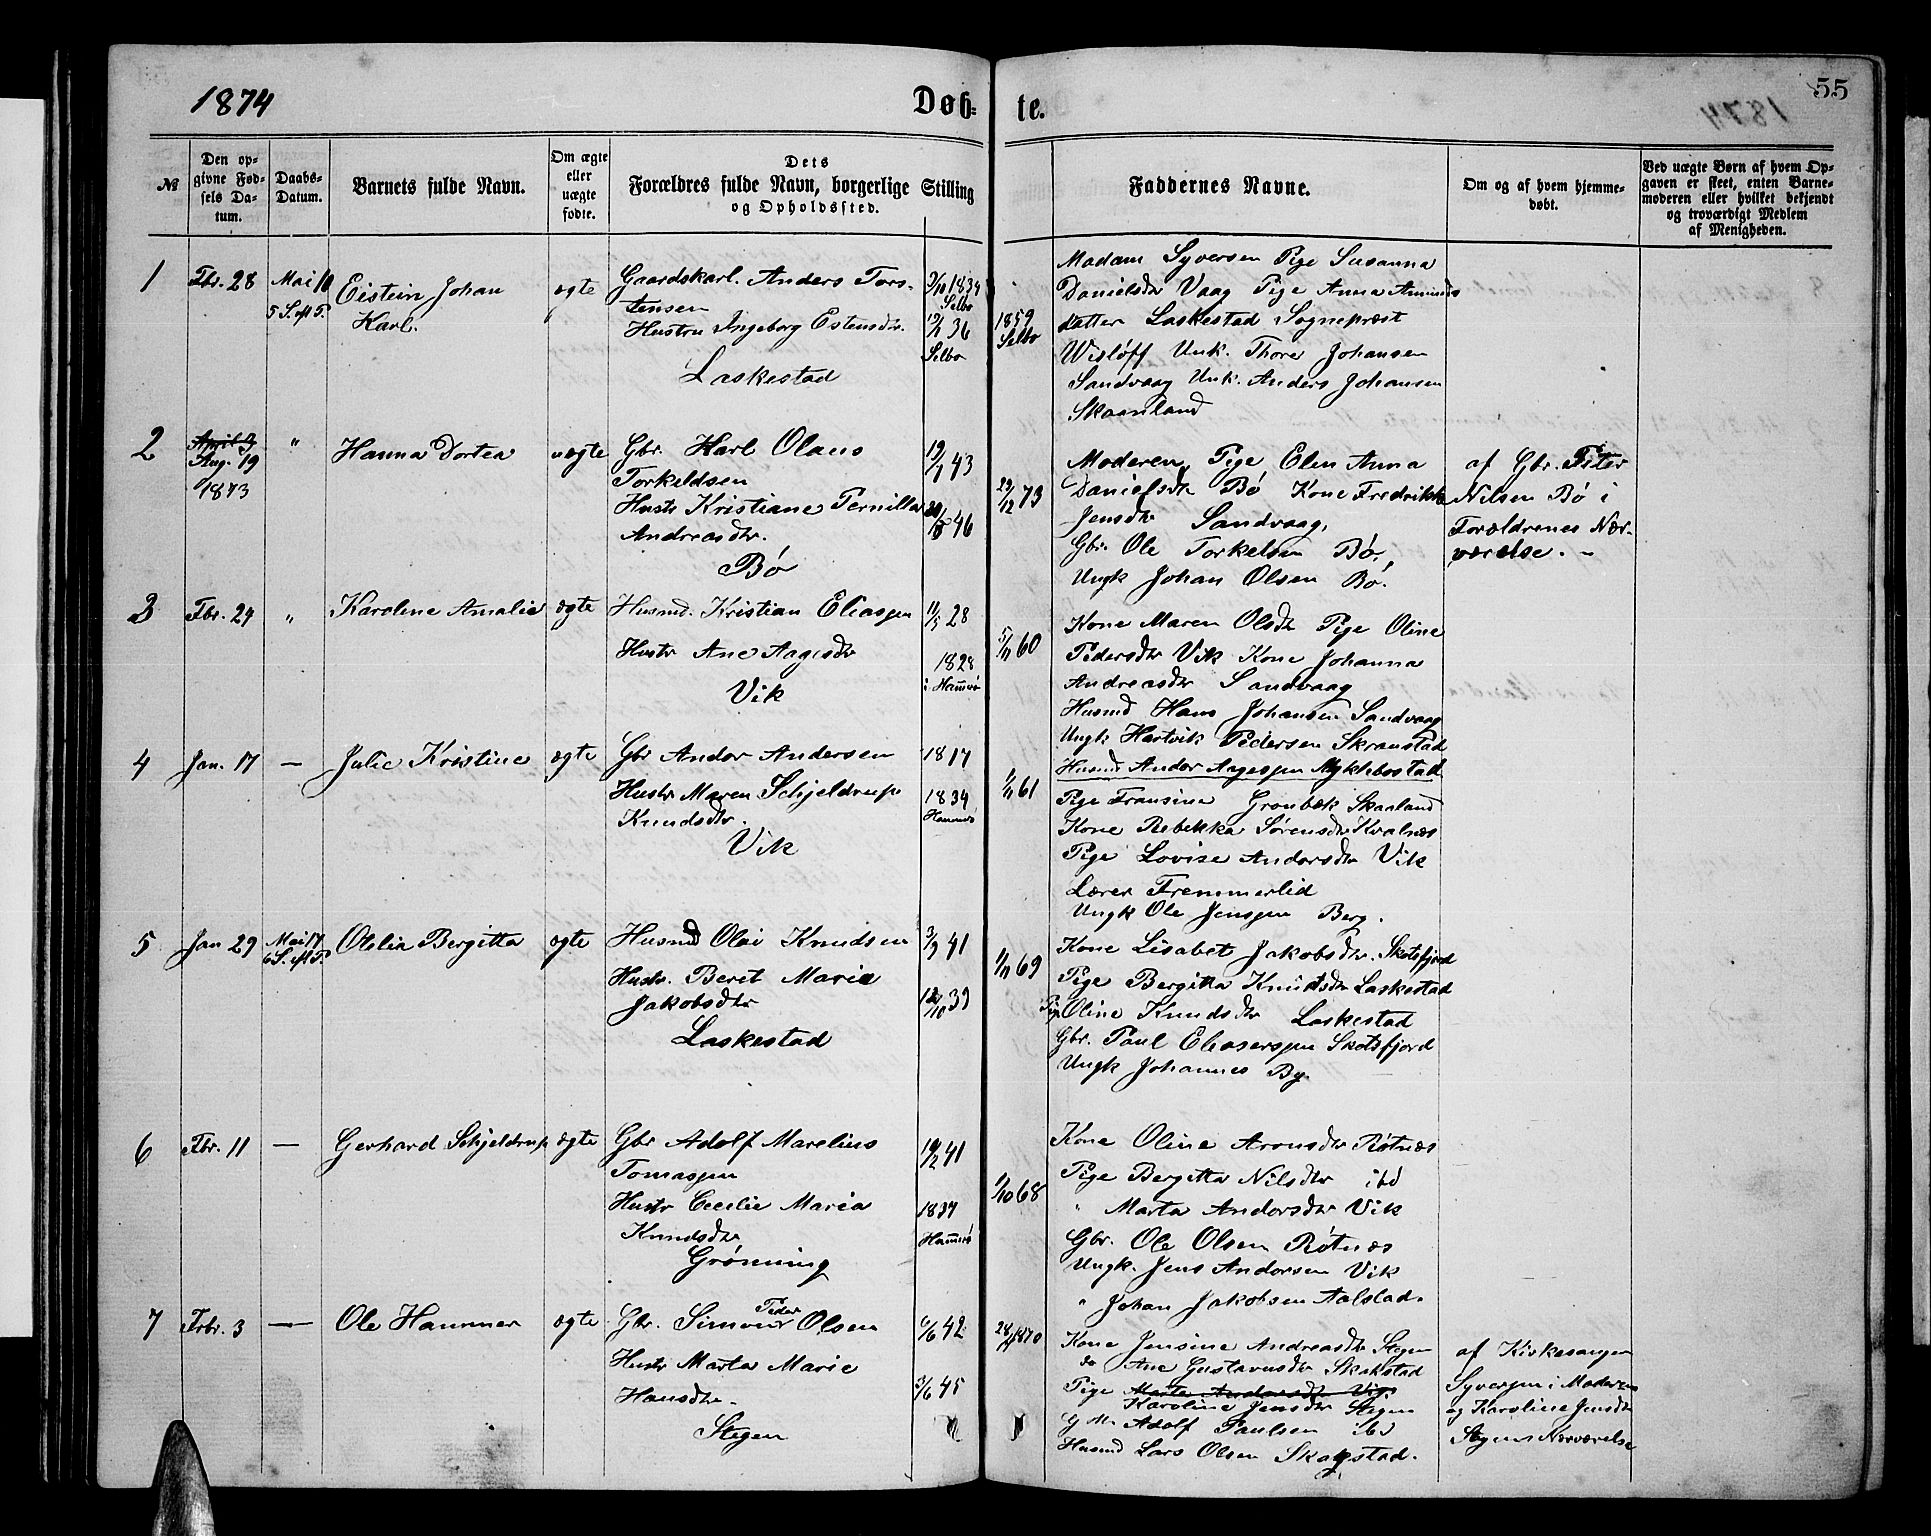 1874
Døb-
te.
55
№
Den op-
givne Fød-
sels Da-
tum.
Daabs-
Datum.
Barnets fulde Navn.
Om ægte
eller
uægte
fødte.
Dets
Forældres fulde Navn, borgerlige Stilling
og Opholdssted.
Faddernes Navne.
Om og af hvem hjemme-
døbt.
Ved uægte Børn af hvem Op-
gaven er skeet, enten Barne-
moderen eller hvilket bekjendt
og troværdigt Medlem
af Menigheden.
1
Fbr. 28
Mai 10
5 S. eft P.
Eistein Johan
Karl.
ægte
Gaardskarl. Anders Tors-
tensen
Hustru Ingeborg Estensdr.
Laskestad
3/10 1834
Selbo
36
Selbo
1859
Selbo
Madam Syversen Pige Susanna
Danielsdr Vaag Pige Anna Amunds
datter Laskestad Sognepræst
Wisløff Unk. Thore Johansen
Sandvaag Unk. Anders Johansen
Skaanland
2
April 3
Aug. 19
1873
"
Hanna Dortea
uægte
Gbr. Karl Olaus
Torkeldsen
Hustr Kristiane Pernilla
Andreasdtr.
Bø
19/1 43
46
29/12 73
Moderen, Pige Elen Anna
Danielsdtr Bø Kone Fredrikke
Jensdtr Sandvaag,
Gbr. Ole Torkelsen Bø,
Ungk Johan Olsen Bø.
af Gbr. Peter
Nilsen Bø i
Forældrenes Nær-
værelse. -
3
Fbr. 24
"
Karoline Amalie
ægte
Husmd. Kristian Eliassen
Hustr Ane Aagesdtr
Vik
11/5 28
1828
i Hamrø
5/11 60
Kone Maren Olsdtr Pige Oline
Pedersdtr Vik Kone Johanna
Andreasdtr Sandvaag
Husmd Hans Johansen Sandvaag
Ungk Hartvik Pedersen Skranstad
Husmd Andor Aagessen Myklebostad
4
Jan. 17
—
Julie Kristine
ægte
Gbr Andor Andersen
Hustr Maren Schjeldrup
Knudsdtr.
Vik
1817
1834
Hamrø
1/11 61
Pige Fransina Grønbæk Skaaland
Kone Rebekka Sørensdtr Kvalnæs
Pige Lovise Andorsdtr Vik
Lærer Fremmerlid
Ungk Ole Jenssen Berg.
5
Jan 29
Mai 17
6 S. eft P.
Otelia Bergitta
ægte
Husmd Olai Knudsen
Hustr. Beret Maria
Jakobsdtr
Laskestad
3/9 41
12/10 39
1/11 69
Kone Lisabet Jakobsdtr. Skotsfjord
Pige Bergitta Knutsdtr Laskestad
Pige Oline Knudsdtr Laskestad
Gbr. Paul Eliasersen Skotsfjord
Ungk Johannes By
6
Fbr. 11
—
Gerhard Schjeldrup
ægte
Gbr Adolf Marelius
Tomassen
Hustr Cecilie Maria
Knudsdtr
Grønning
10/2 41
1834
Hamrø
1/10 68
Kone Oline Aronsdtr Røtnæs
Pige Bergitta Nilsdtr ibd
" Marta Andorsdtr Vik
Gbr. Ole Olsen Røtnæs
Ungk. Jens Andorsen Vik
" Johan Jakobsen Aalstad.
7
Frbr. 3
—
Ole Hammer
ægte
Gbr. Simon Peder Olsen
Hustr Marta Marie
Hansdtr.
Stegen
6/6 42
3/6 45
1870
Kone Jensine Andreasdtr Stegen
do Ane Gustavusdtr Skakstad
Pige Marta Andorsdtr Vik
Karoline Jensdtr Stegen
G M. Adolf Paulsen ibd
Husmd Lars Olsen Skagstad.
af Kirkesanger
Syversen i Moderens
og Karoline Jensdtr
Stegens Nærværelse